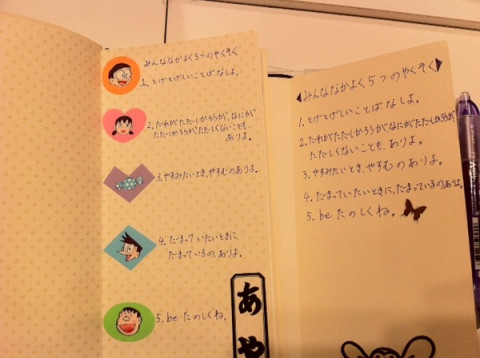 みんななかよく5つのやくそく
1. とげとげしいことばなしよ。
2. だれがただしかろうが、なにが
ただしかろうが、ただしくないことも、
ありよ。
3. やすみたいとき、やすむのありよ。
4. だまっていたいときに、
だまっているの、ありよ。
5. be たのしくね。
あや
みんななかよく5つのやくそく
1. とげとげしいことばなしよ。
2. だれがただしかろうが、なにがただしかろうが
ただしくないことも、ありよ。
3. やすみたいとき、やすむのありよ。
4. だまっていたいときに、だまっているのありよ。
5. be たのしくね。